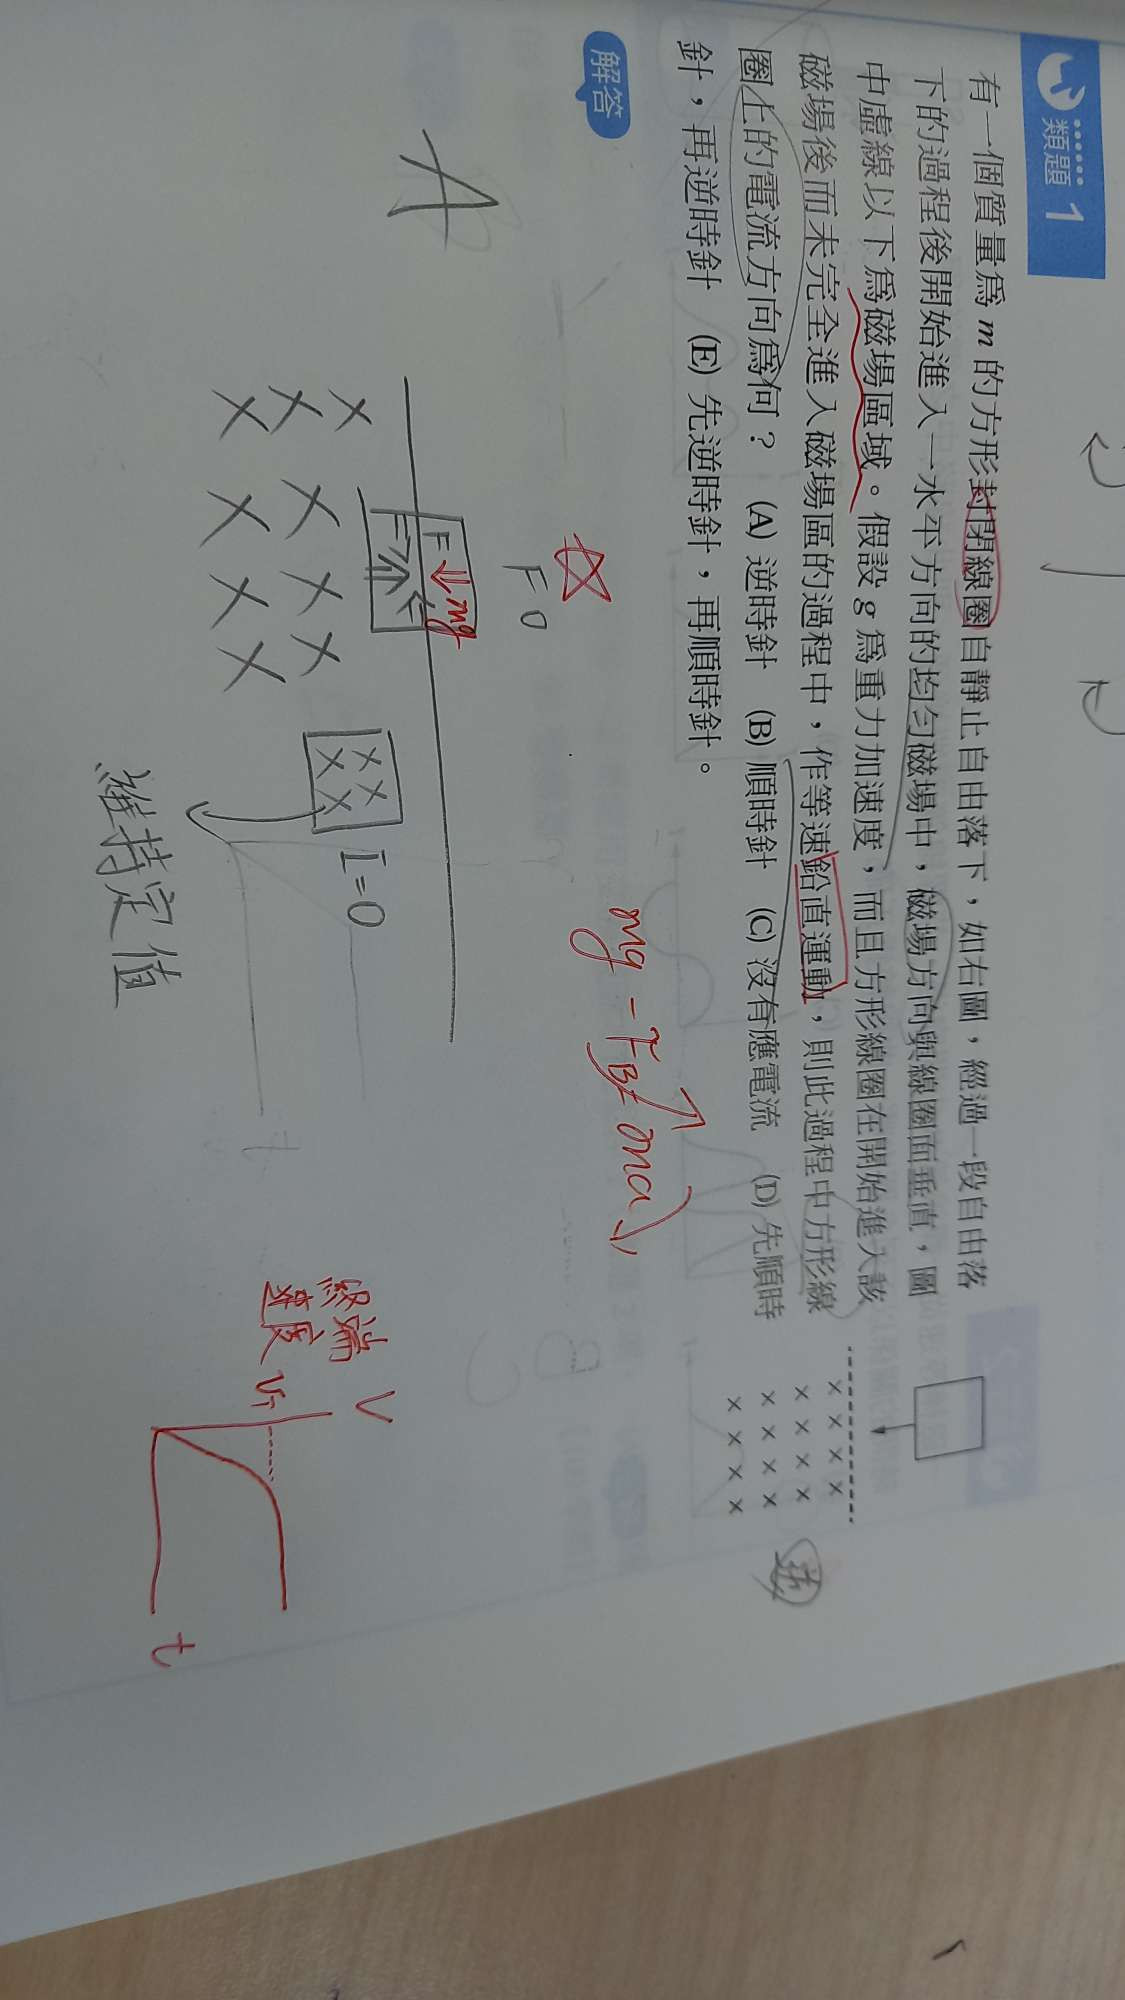 類題 1
有一個質量為 m 的方形封閉線圈自靜止自由落下，如右圖，經過一段自由落
下的過程後開始進入一水平方向的均勻磁場中，磁場方向與線圈面垂直，圖
中虛線以下為磁場區域。假設 g 為重力加速度，而且方形線圈在開始進入該
磁場後而未完全進入磁場區的過程中，作等速鉛直運動，則此過程中方形線
圈上的電流方向為何？ (A) 逆時針 (B) 順時針 (C) 沒有應電流 (D) 先順時
針，再逆時針 (E) 先逆時針，再順時針。
解答
A
F 0
mg - FB = ma
F mg
F
I=0
維持定值
t
終端
速度
V
VT
t